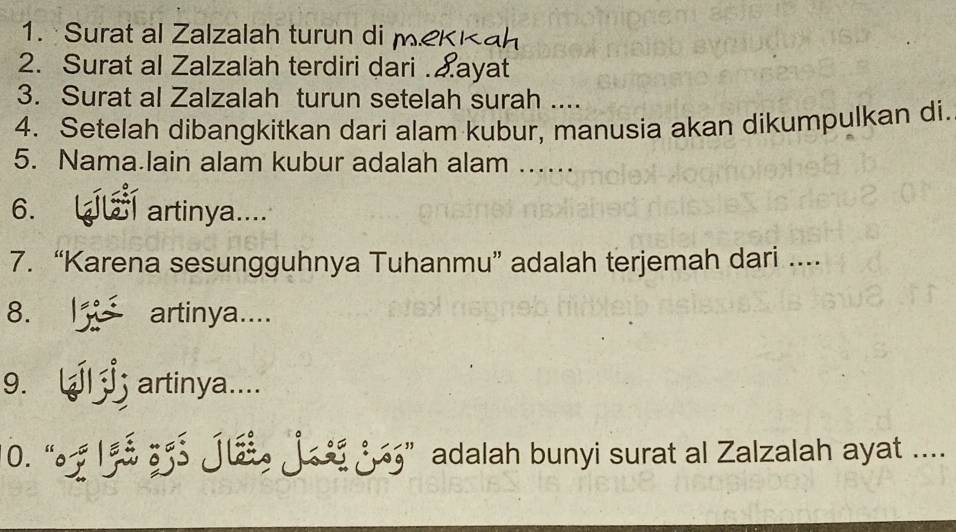 1. Surat al Zalzalah turun di mekkah
2. Surat al Zalzalah terdiri dari .8.ayat
3. Surat al Zalzalah turun setelah surah ....
4. Setelah dibangkitkan dari alam kubur, manusia akan dikumpulkan di..
5. Nama lain alam kubur adalah alam ......
6. أَثْقَالَهَا artinya....
7. “Karena sesungguhnya Tuhanmu” adalah terjemah dari ....
8. خَيْرًا artinya....
9. زِلْزَالَهَا artinya....
10. “وَمَنْ يَعْمَلْ مِثْقَالَ ذَرَّةٍ شَرًّا يَرَهُ” adalah bunyi surat al Zalzalah ayat ....